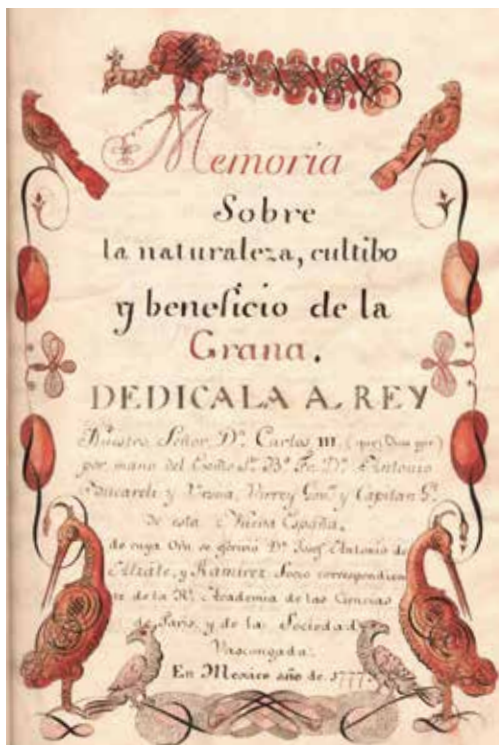 Memoria
Sobre
la naturaleza, cultibo
y beneficio de la
Grana.
DEDICALA A REY
Nuestro Señor Dn. Carlos III. (que Dios gue)
por mano del Exmo Sr. Bo. Fr. Dn. Antonio
Bucareli y Ursua, Virrey Gour. y Capitan Gl.
de esta Nueva España,
de cuya Odn se formó Dn. Josef Antonio de
Alzate, y Ramirez Socio correspondien
te de la Rl. Academia de las Ciencias
de Paris, y de la Sociedad
Vascongada.
En Mexico año de 1777.